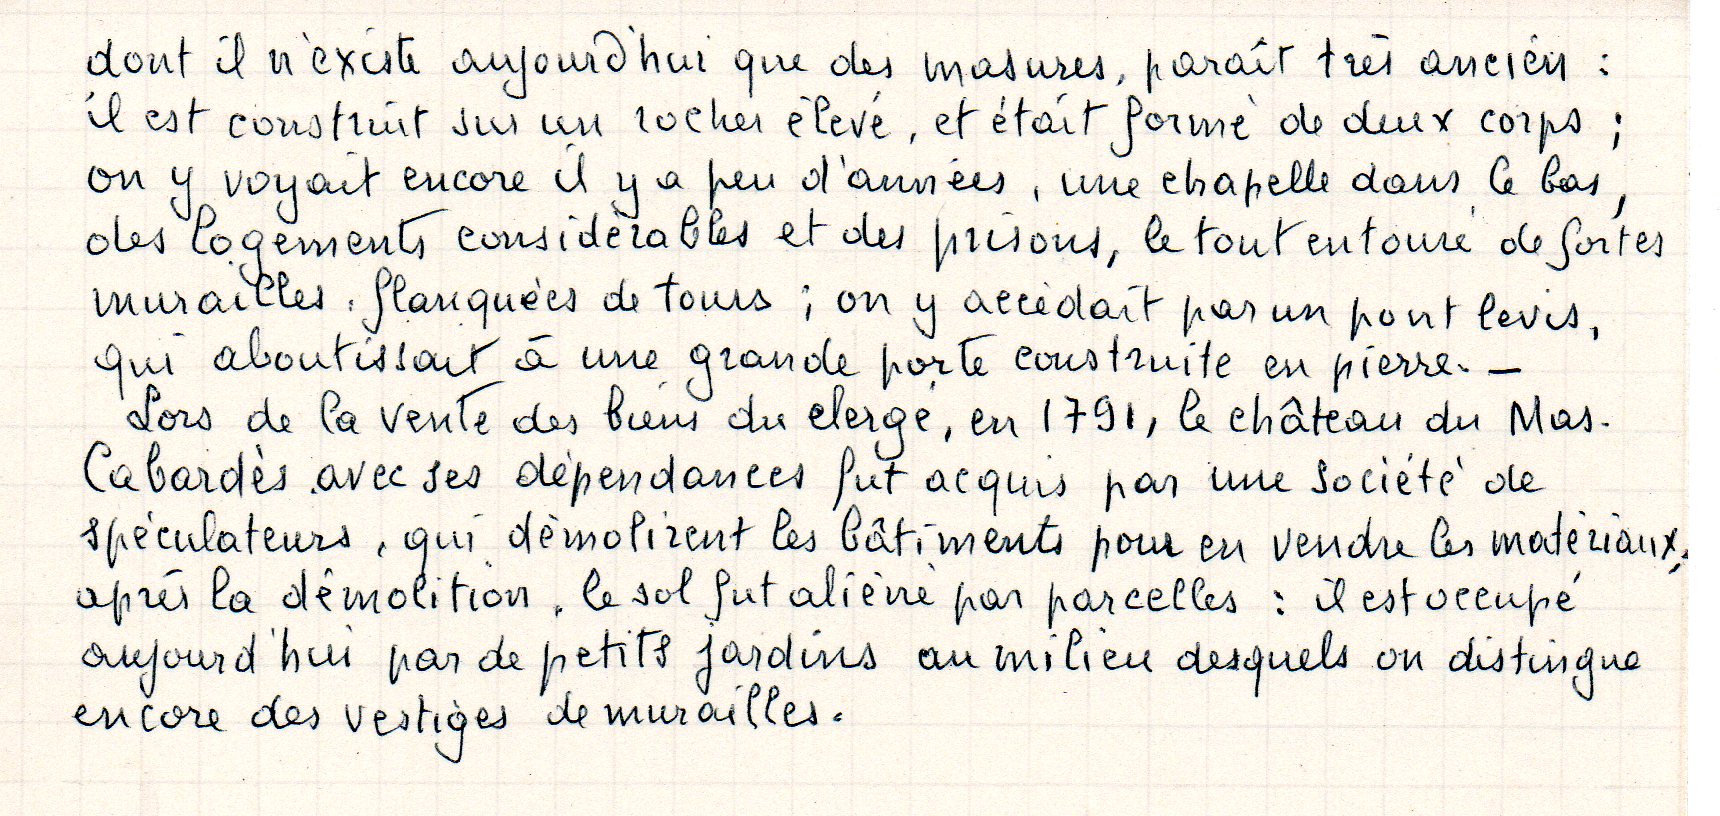 dont il n'existe aujourd'hui que des masures, paraît très ancien :
il est construit sur un rocher élevé, et était formé de deux corps ;
on y voyait encore il y a peu d'années, une chapelle dans le bas,
des logements considérables et des prisons, le tout entouré de fortes
murailles, flanquées de tours ; on y accédait par un pont levis,
qui aboutissait à une grande porte construite en pierre. —
Lors de la vente des biens du clergé, en 1791, le château du Mas-
Cabardès avec ses dépendances fut acquis par une société de
spéculateurs, qui démolirent les bâtiments pour en vendre les matériaux,
après la démolition, le sol fut aliéné par parcelles : il est occupé
aujourd'hui par de petits jardins au milieu desquels on distingue
encore des vestiges de murailles.